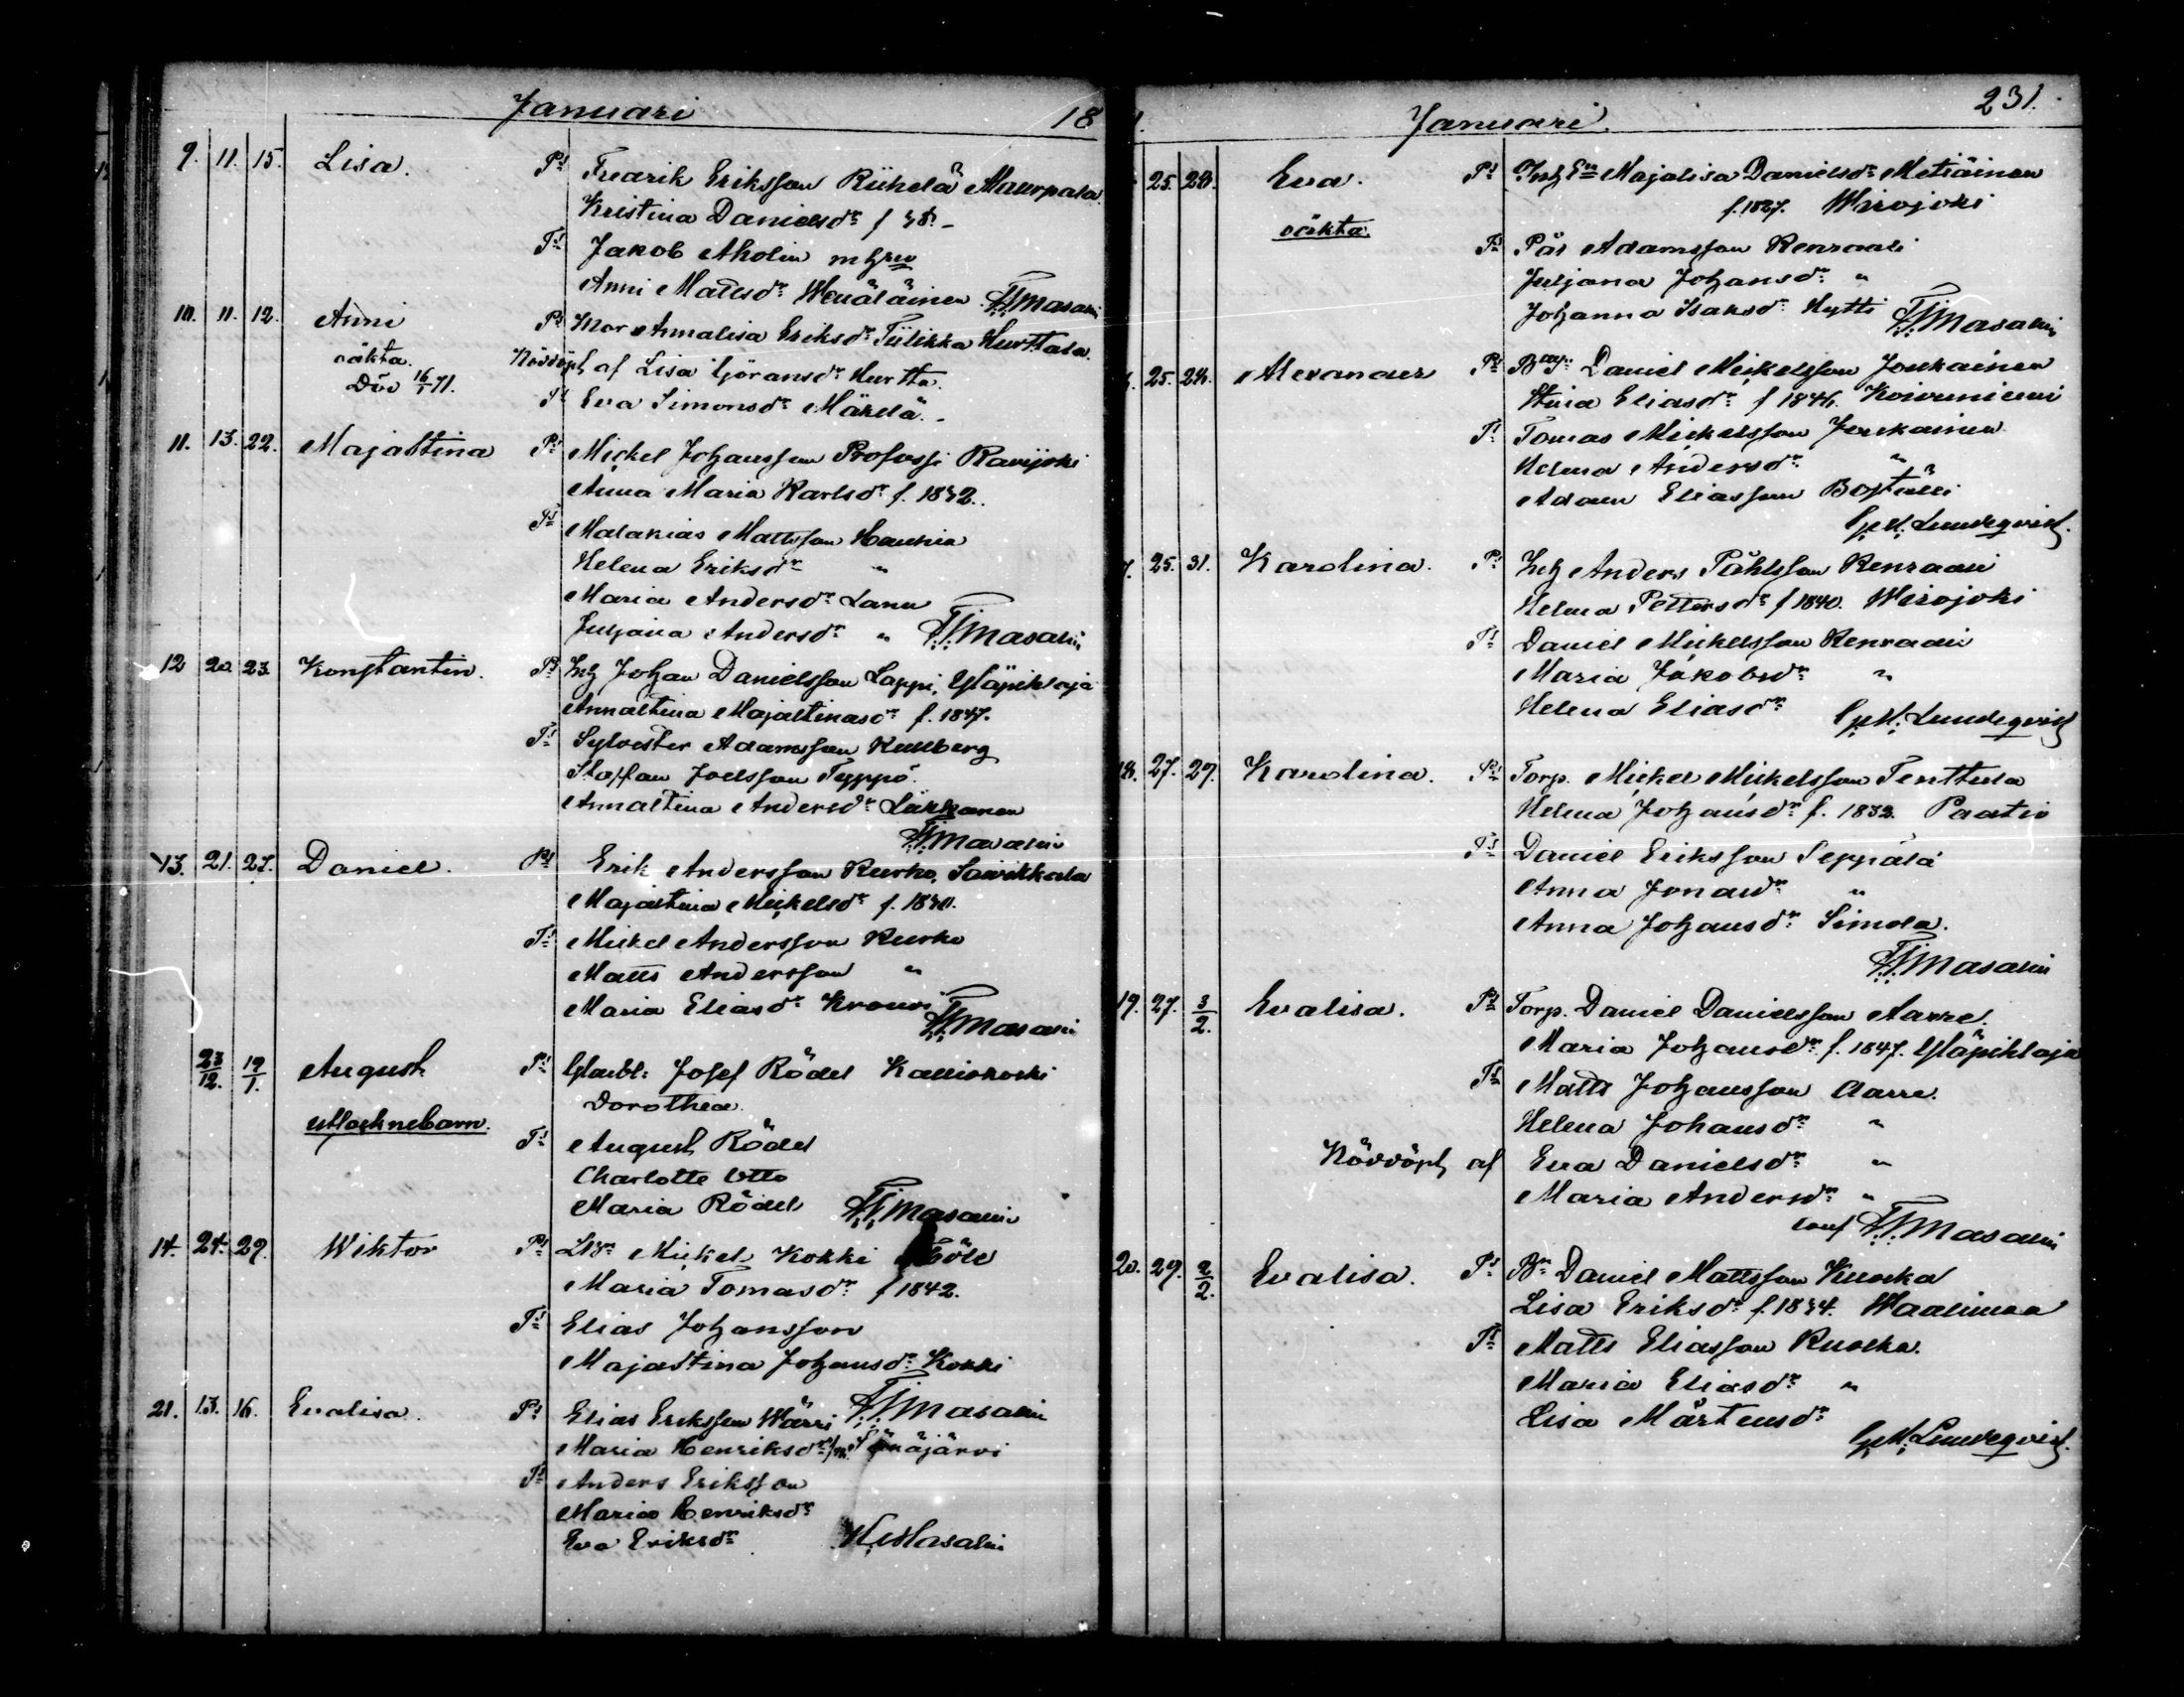 Januari 18
9. 11. 15. Lisa. Ps Fredrik Eriksson Riihelä Maurpala.
Kristina Danielsdr f 38.
Ts Jakob Aholin m hru
Anni Mattsdr Wenäläinen Masalin
10. 11. 12. Anni Ps Mor Annalisa Eriksdr Tiilikka Hurttala.
oäkta. Nöddöpt af Lisa Göransdr Hurtta.
Död 16/1 71. Ts Eva Simonsdr Märelä.
11. 13. 22. Majastina Ps Mickel Johansson Profossi Ravijoki
Anna Maria Karlsdr f. 1832.
Ts Malakias Mattsson Haukia
Helena Eriksdr "
Maria Andersdr Lanu
Juljana Andersdr " Masalin
12 20. 23. Konstantin. Ps Inh Johan Danielsson Lappi, Yläpihlaja
Annastina Majastinasdr f. 1847.
Ts Sylvester Adamsson Kullberg
Staffan Joelsson Typpö.
Annastina Andersdr
Masalin
13. 21. 27. Daniel. Ps Erik Andersson Kurko, Saivikkala
Majastina Mickelsdr f. 1830.
Ts Mickel Andersson Kurko
Matts Andersson "
Maria Eliasdr Krouvi
Masalin
23/12. 19/1. August Ps Glasbl: Josef Rödel Kalliokoski
Dorothea.
Ts August Rödel
Charlotte Otto
Maria Rödel Masalin
14. 24. 29. Wiktor Ps Mickel Kokki
Maria Tomasdr f 1842.
Ts Elias Johansson
Majastina Johansdr Kokki
Masalin
21. 13. 16. Evalisa. Ps Elias Eriksson Wärri
Maria Henriksdr
Ts Anders Eriksson
Maria Henriksdr
Eva Eriksdr Masalin
Januari. 231.
25. 28. Eva. Ps Majalisa Danielsdr Metiäinen
f. 1827. Wirojoki
oäkta. Ts Pär Adamsson Renraali
Juljana Johansdr "
Johanna Isaksdr Hytti Masalin
25. 28. Alexander Ps Daniel Mickelsson Joukainen
Stina Eliasdr f 1846. Koivuniemi
Ts Tomas Mickelsson Joukainen
Helena Andersdr "
Adam Eliasson Boställi
Lundeqvist.
25. 31. Karolina. Ps Inh Anders Påhlsson Renraali
Helena Pettersdr f 1840. Wirojoki
Ts Daniel Mickelsson Renraali
Maria Jakobsdr "
Helena Eliasdr Lundeqvist
18. 27. 29. Karolina. Ps Torp. Mickel Mickelsson Tenttula
Helena Johansdr f. 1832. Paatio
Ts Daniel Eriksson Seppälä
Anna Jonasdr "
Anna Johansdr Simola.
Masalin
19. 27. 3/2. Evalisa. Ps Torp. Daniel Danielsson Aarre.
Maria Johansdr f. 1847. Yläpihlaja
Ts Matts Johansson Aarre.
Helena Johansdr "
Nöddöpt af Eva Danielsdr "
Maria Andersdr "
conf Masalin
20. 29. 2/2. Evalisa. Ps Bn Daniel Mattsson Kuokka
Lisa Eriksdr f. 1834. Waalimaa
Ts Matts Eliasson Kuokka.
Maria Eliasdr "
Lisa Mårtensdr
Lundeqvist.